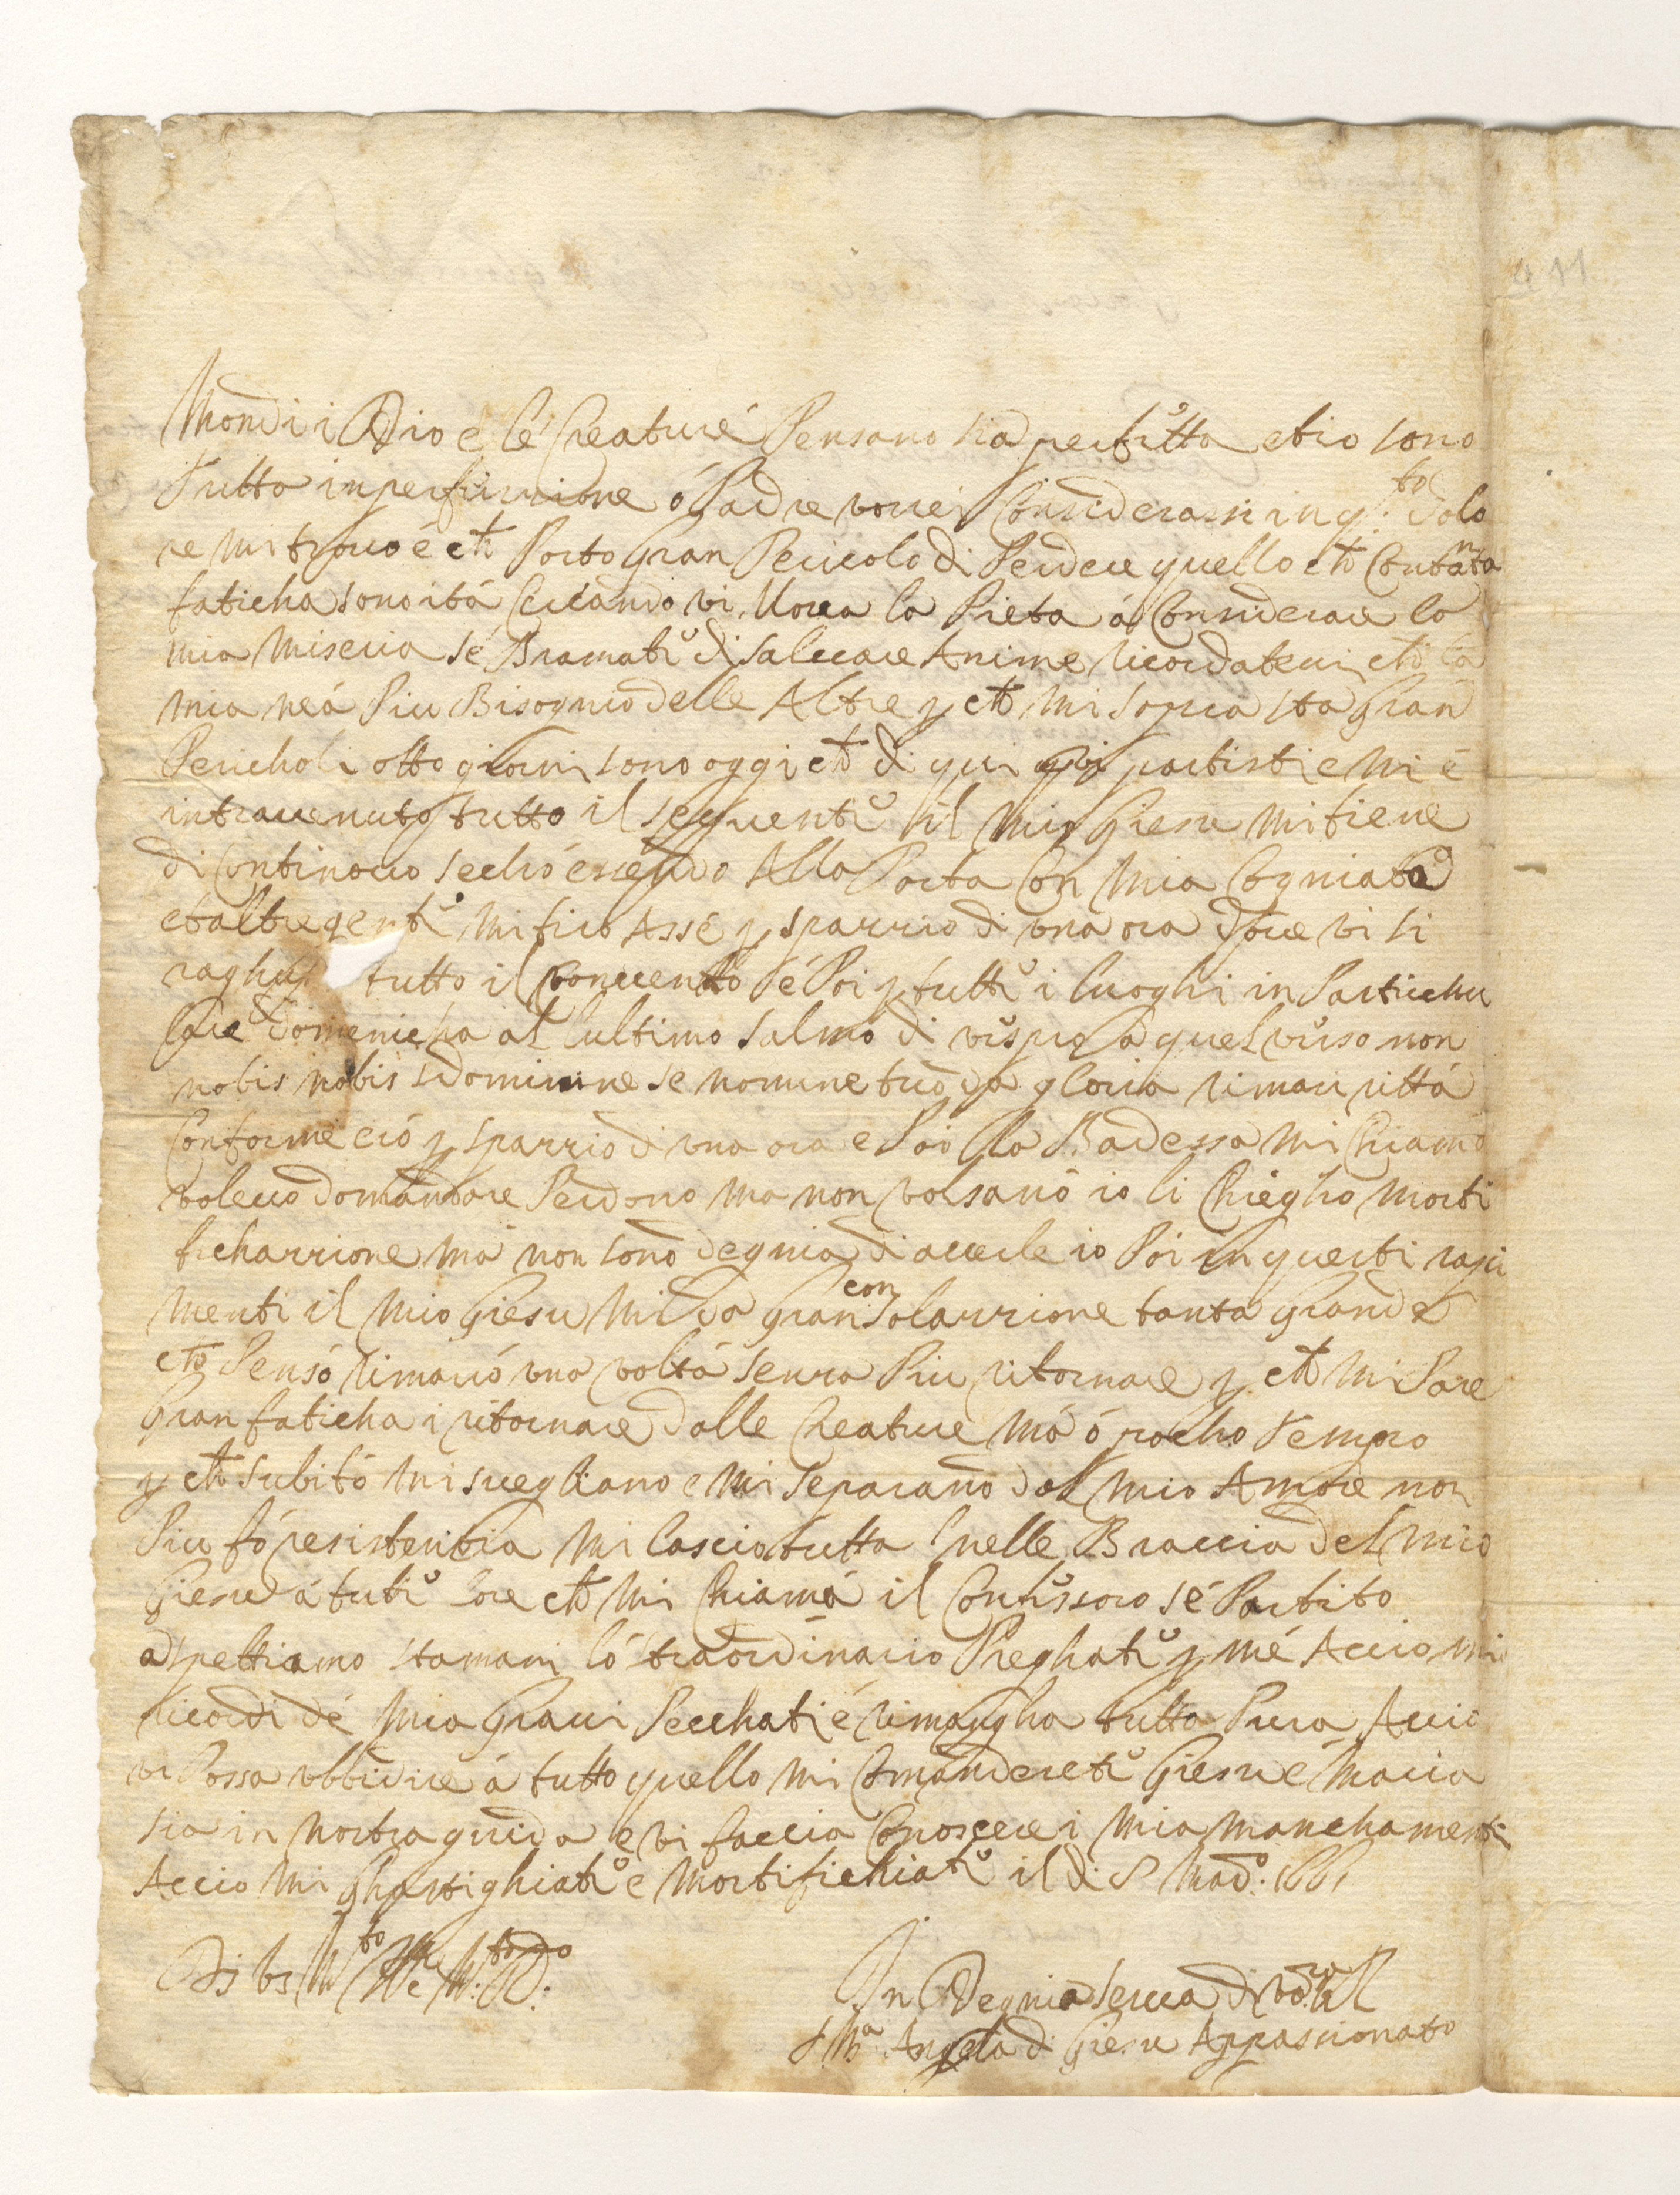 Mondi i Dio e le Creature Pensano sia perfetta etio sono
Tutta inperfizzione ó Padre vorrei Considerassi in q.to Dolo
re mi trovo é ch Porto Gran Pericolo di Perdere quello ch Contanta
faticha sono ità Cercando vi Mova la Pieta á Considerare la
mia Miseria se Bramate di Salvare Anime ricordatevi ch la
mia ne á Piu Bisognio delle Altre p ch mi sopra sta Gran
Pericholi otto giorni sono oggi ch di qui partisti e mi é
intravenuto tutto il sequente il Mio Giesu mi tiene
di Continovo secho essendo Alla Porta Con Mia Cogniata
et altre gente mi tirò Assé p spazzio di una ora dove vi si
raghu tutto il Convento é Poi p tutti i luoghi in Partichu
lare Domenicha al l ultimo Salmo di vespro a quel verso non
nobis nobis Domine se nomine tuo da gloria rimasi rittá
Conforme ero p spazzio di una ora e Poi la Badessa mi Chiamò
volevo domandare Perdono ma non volsano io li Chiegho morti
fichazzione má non sono degnia di averle io Poi in questi rapi
menti il Mio Giesu Mi da Gran consolazzione tanta Grande
ch Pensó rimaró una volta senza Piu ritornare p ch mi Pare
Gran faticha i ritornare dalle Creature má ó pocho tempo
p ch subitó mi svegliano e mi separano dal mio Amore non
Piu fó resistentia mi lascio tutta nelle Braccia del mio
Giesu á tute lore ch mi Chiama il Confessoro sé Partito
aspettiamo stamani ló straordinario Preghate p mé Accio mi
ricordi dé mia Gravi Pecchati é rimangha tutta Pura Accio
vi Possa ubbidire á tutto quello mi Comanderete Giesu é Maria
sia in nostra guida e vi faccia Conoscere i mia manchamenti
Accio mi Ghastighiate e Mortifichiate il di 8
In Degnia serva di
S. Ma Angela di Giesu Appassionato